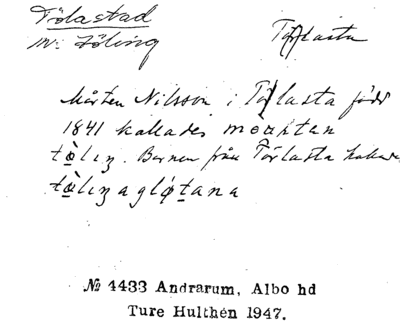 Tölastad
m: Töling
Törlasta
Mårten Nilsson i Törlasta född
1841 kallades
Barnen från Törlasta kallades
№ 4433 Andrarum, Albo hd
Ture Hulthén 1947.